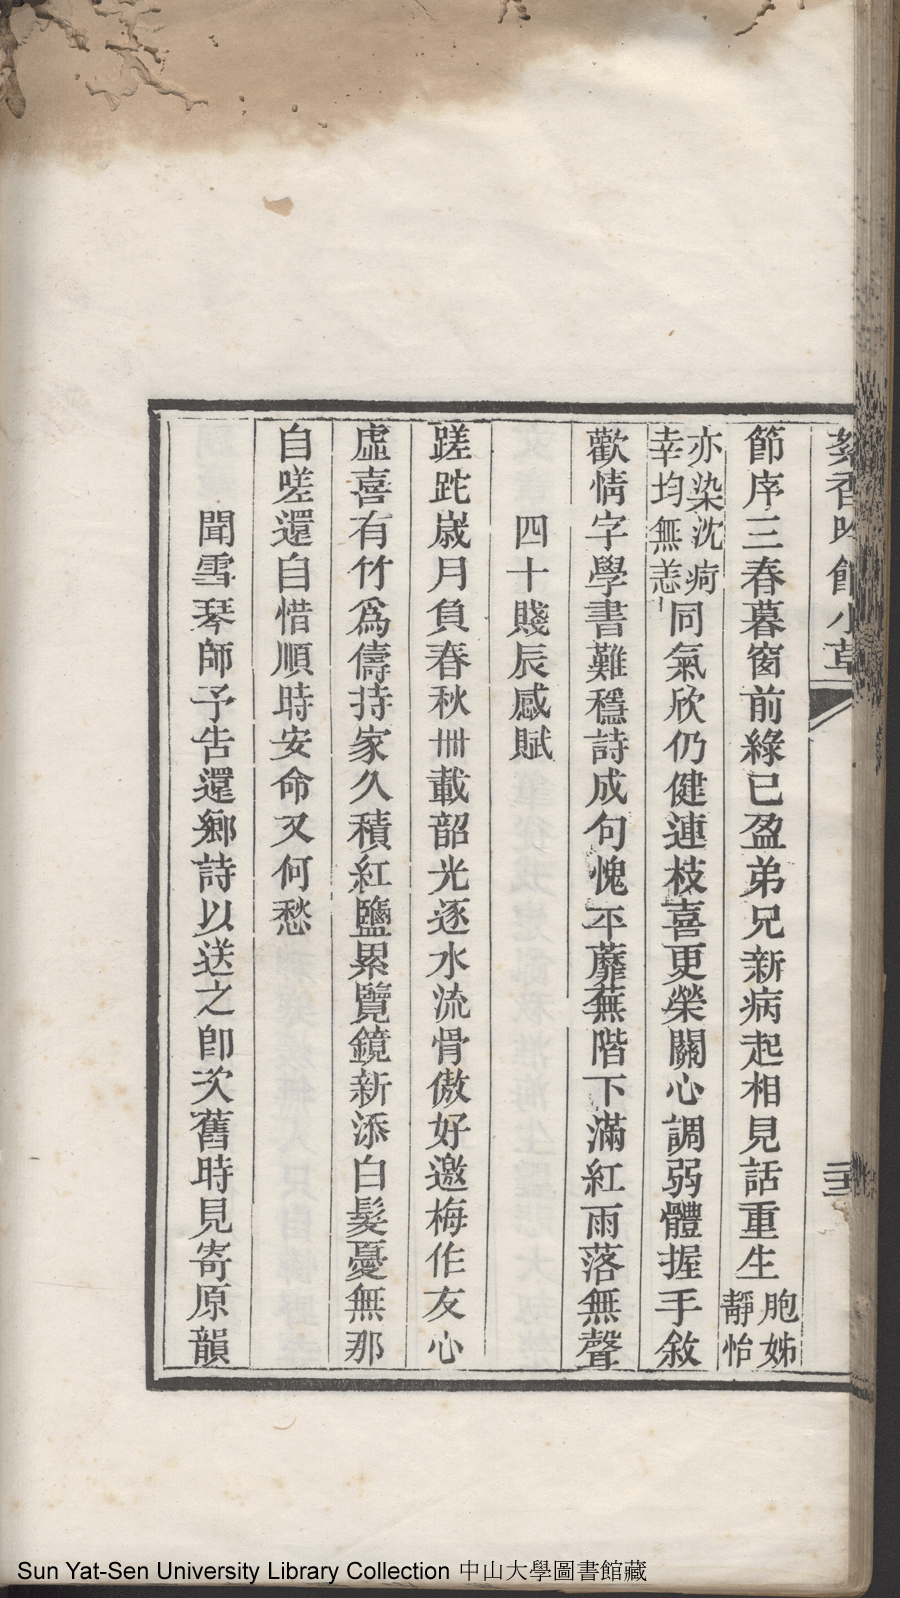 節序三春暮窗前綠已盈弟兄新病起相見話重生胞姊靜怡
亦染沈疴幸均無恙同氣欣仍健連枝喜更榮關心調弱體握手敘
歡情字學書難穩詩成句愧平蘼蕪階下滿紅雨落無聲
四十賤辰感賦
蹉跎歲月負春秋卌載韶光逐水流骨傲好邀梅作友心
虛喜有竹爲儔持家久積紅鹽累覽鏡新添白髮憂無那
自嗟還自惜順時安命又何愁
聞雪琴師予告還鄉詩以送之卽次舊時見寄原韻
Sun Yat-Sen University Library Collection 中山大學圖書館藏